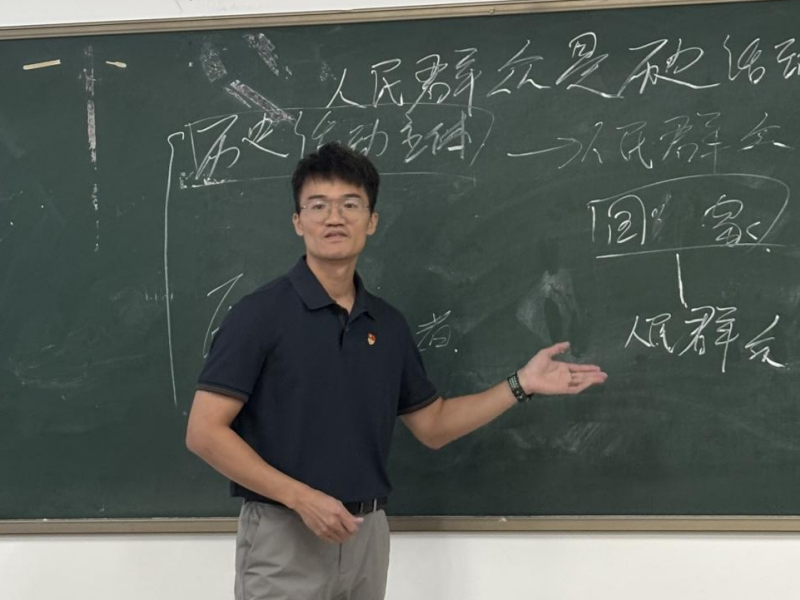 人民群众是历史活动
历史活动主体 →人民群众
国家
人民群众
者